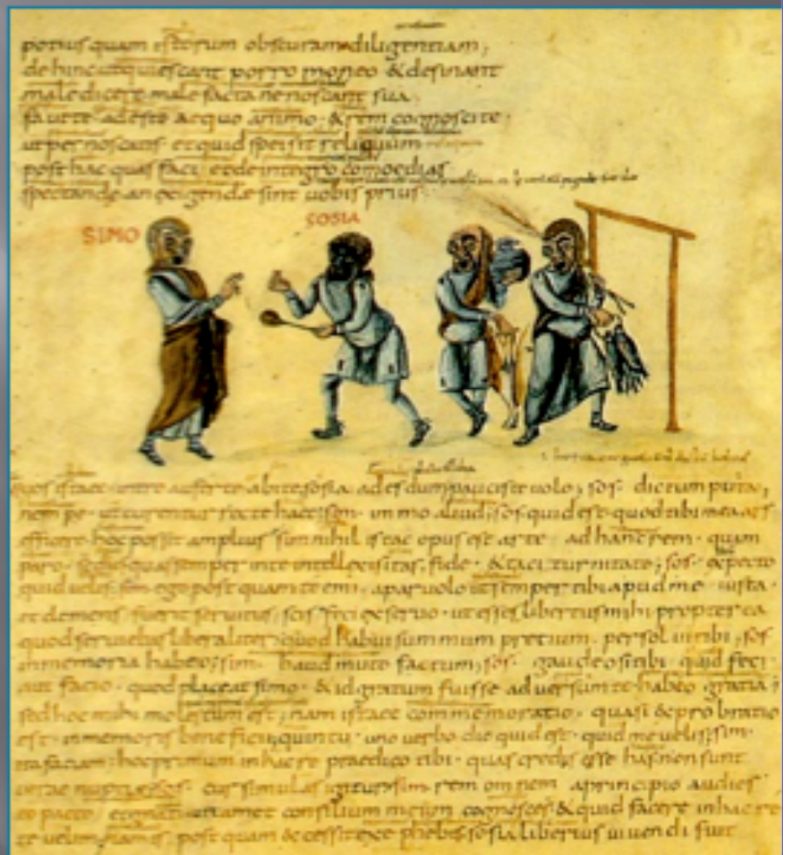 potius quam istorum obscuram diligentiam;
dehinc ut quiescant porro moneo & desinant
maledicere malefacta ne noscant sua.
fauete adeste aequo animo & rem cognoscite.
ut pernoscatis ecquid spei sit reliquum
posthac quas faci et de integro comoedias
spectandae an exigendae sint uobis prius.
SIMO
SOSIA
uos istaec intro auferte abite sosia adesdum paucis te uolo; sos. dictum puta;
nempe ut curentur recte haec; sim. immo aliud; sos. quid est quod tibi mea ars
efficere hoc possit amplius sim nihil istac opus est arte ad hanc rem quam
paro sed his quas semper in te intellexi sitas, fide & taciturnitate; sos. expecto
quid uelis, sim. ego postquam te emi, a paruolo ut semper tibi apud me iusta
et clemens fuerit seruitus, scis feci ex seruo ut esses libertus mihi propterea
quod seruiebas liberaliter quod habui summum pretium persolui tibi; sos
in memoria habeo; sim. haud muto factum; sos. gaudeo si tibi quid feci
aut facio quod placeat simo & id gratum fuisse aduersum te habeo gratiā;
sed hoc mihi molestum est; nam istaec commemoratio quasi exprobratio
est inmemoris benefici; quin tu uno uerbo dic quid est quid me uelis; sim.
ita faciam; hoc primum in hac re praedico tibi quas credis esse has non sunt
uerae nuptiae; sos. cur simulas igitur; sim. rem omnem a principio audies
eo pacto & gnati uitam et consilium meum cognosces & quid facere in hac re
te uelim; nam is postquam excessit ex ephebis sosia liberius uiuendi fuit